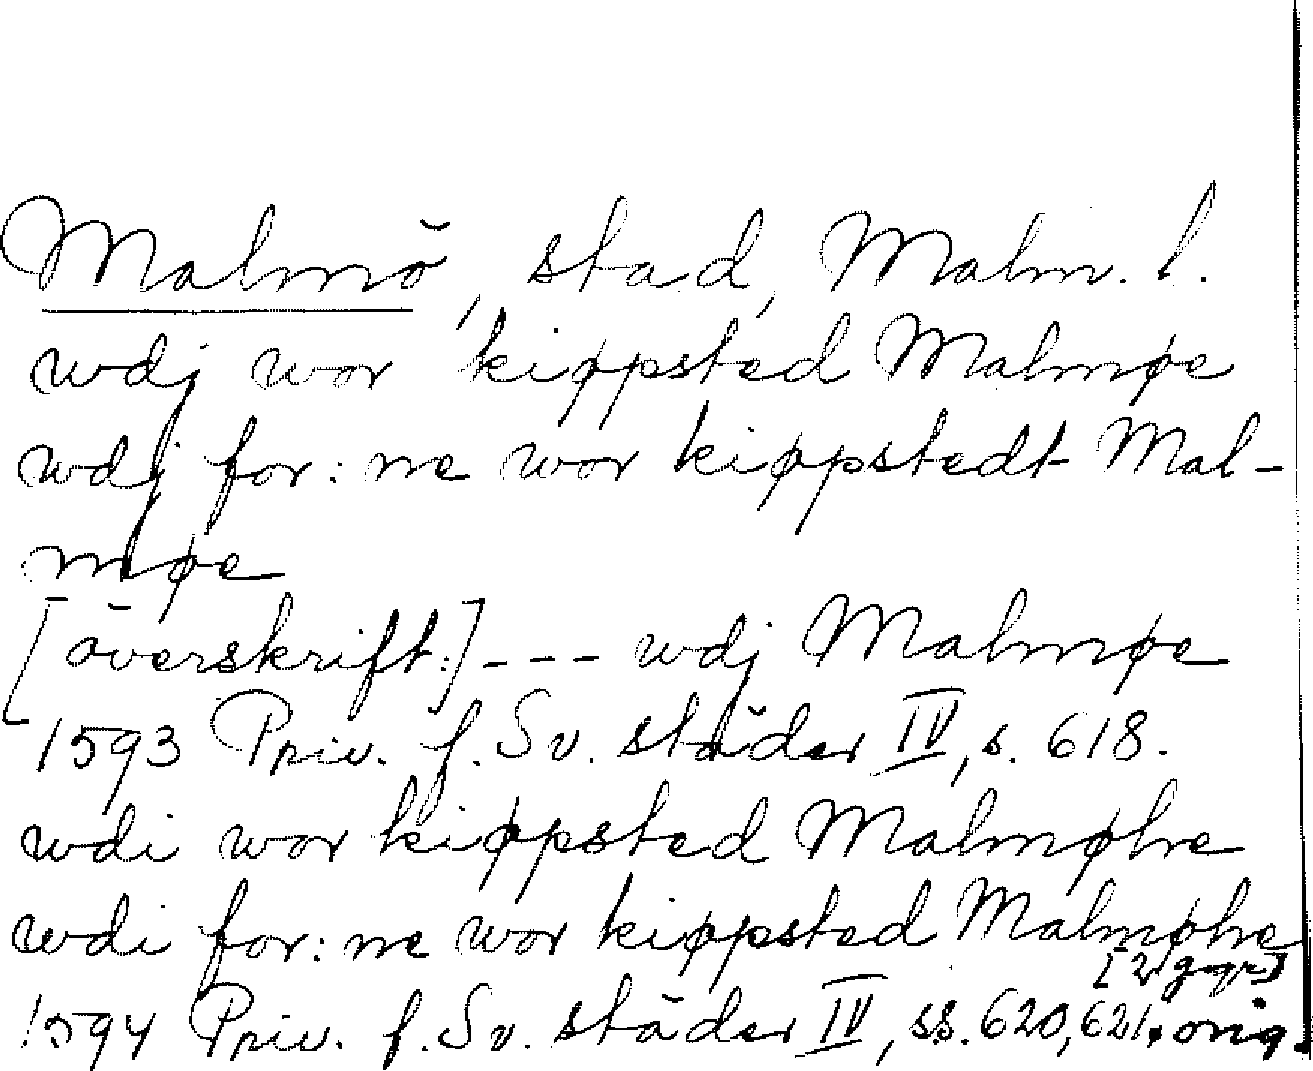 Malmö, stad, Malm. l.
wdj wor kiøppsted Malmøe
wdj for: ne wor kiøppstedt Mal-
møe
[överskrift:] - - - wdj Malmøe
1593 Priv. f. Sv. städer IV, s. 618.
wdi wor kiøppsted Malmøhe
wdi for: ne wor kiøppsted Malmøhe
[2 ggr]
1594 Priv. f. Sv. städer IV, ss. 620, 621. orig.